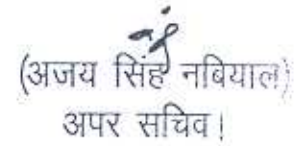 (अजय सिंह नबियाल)
अपर सचिव।